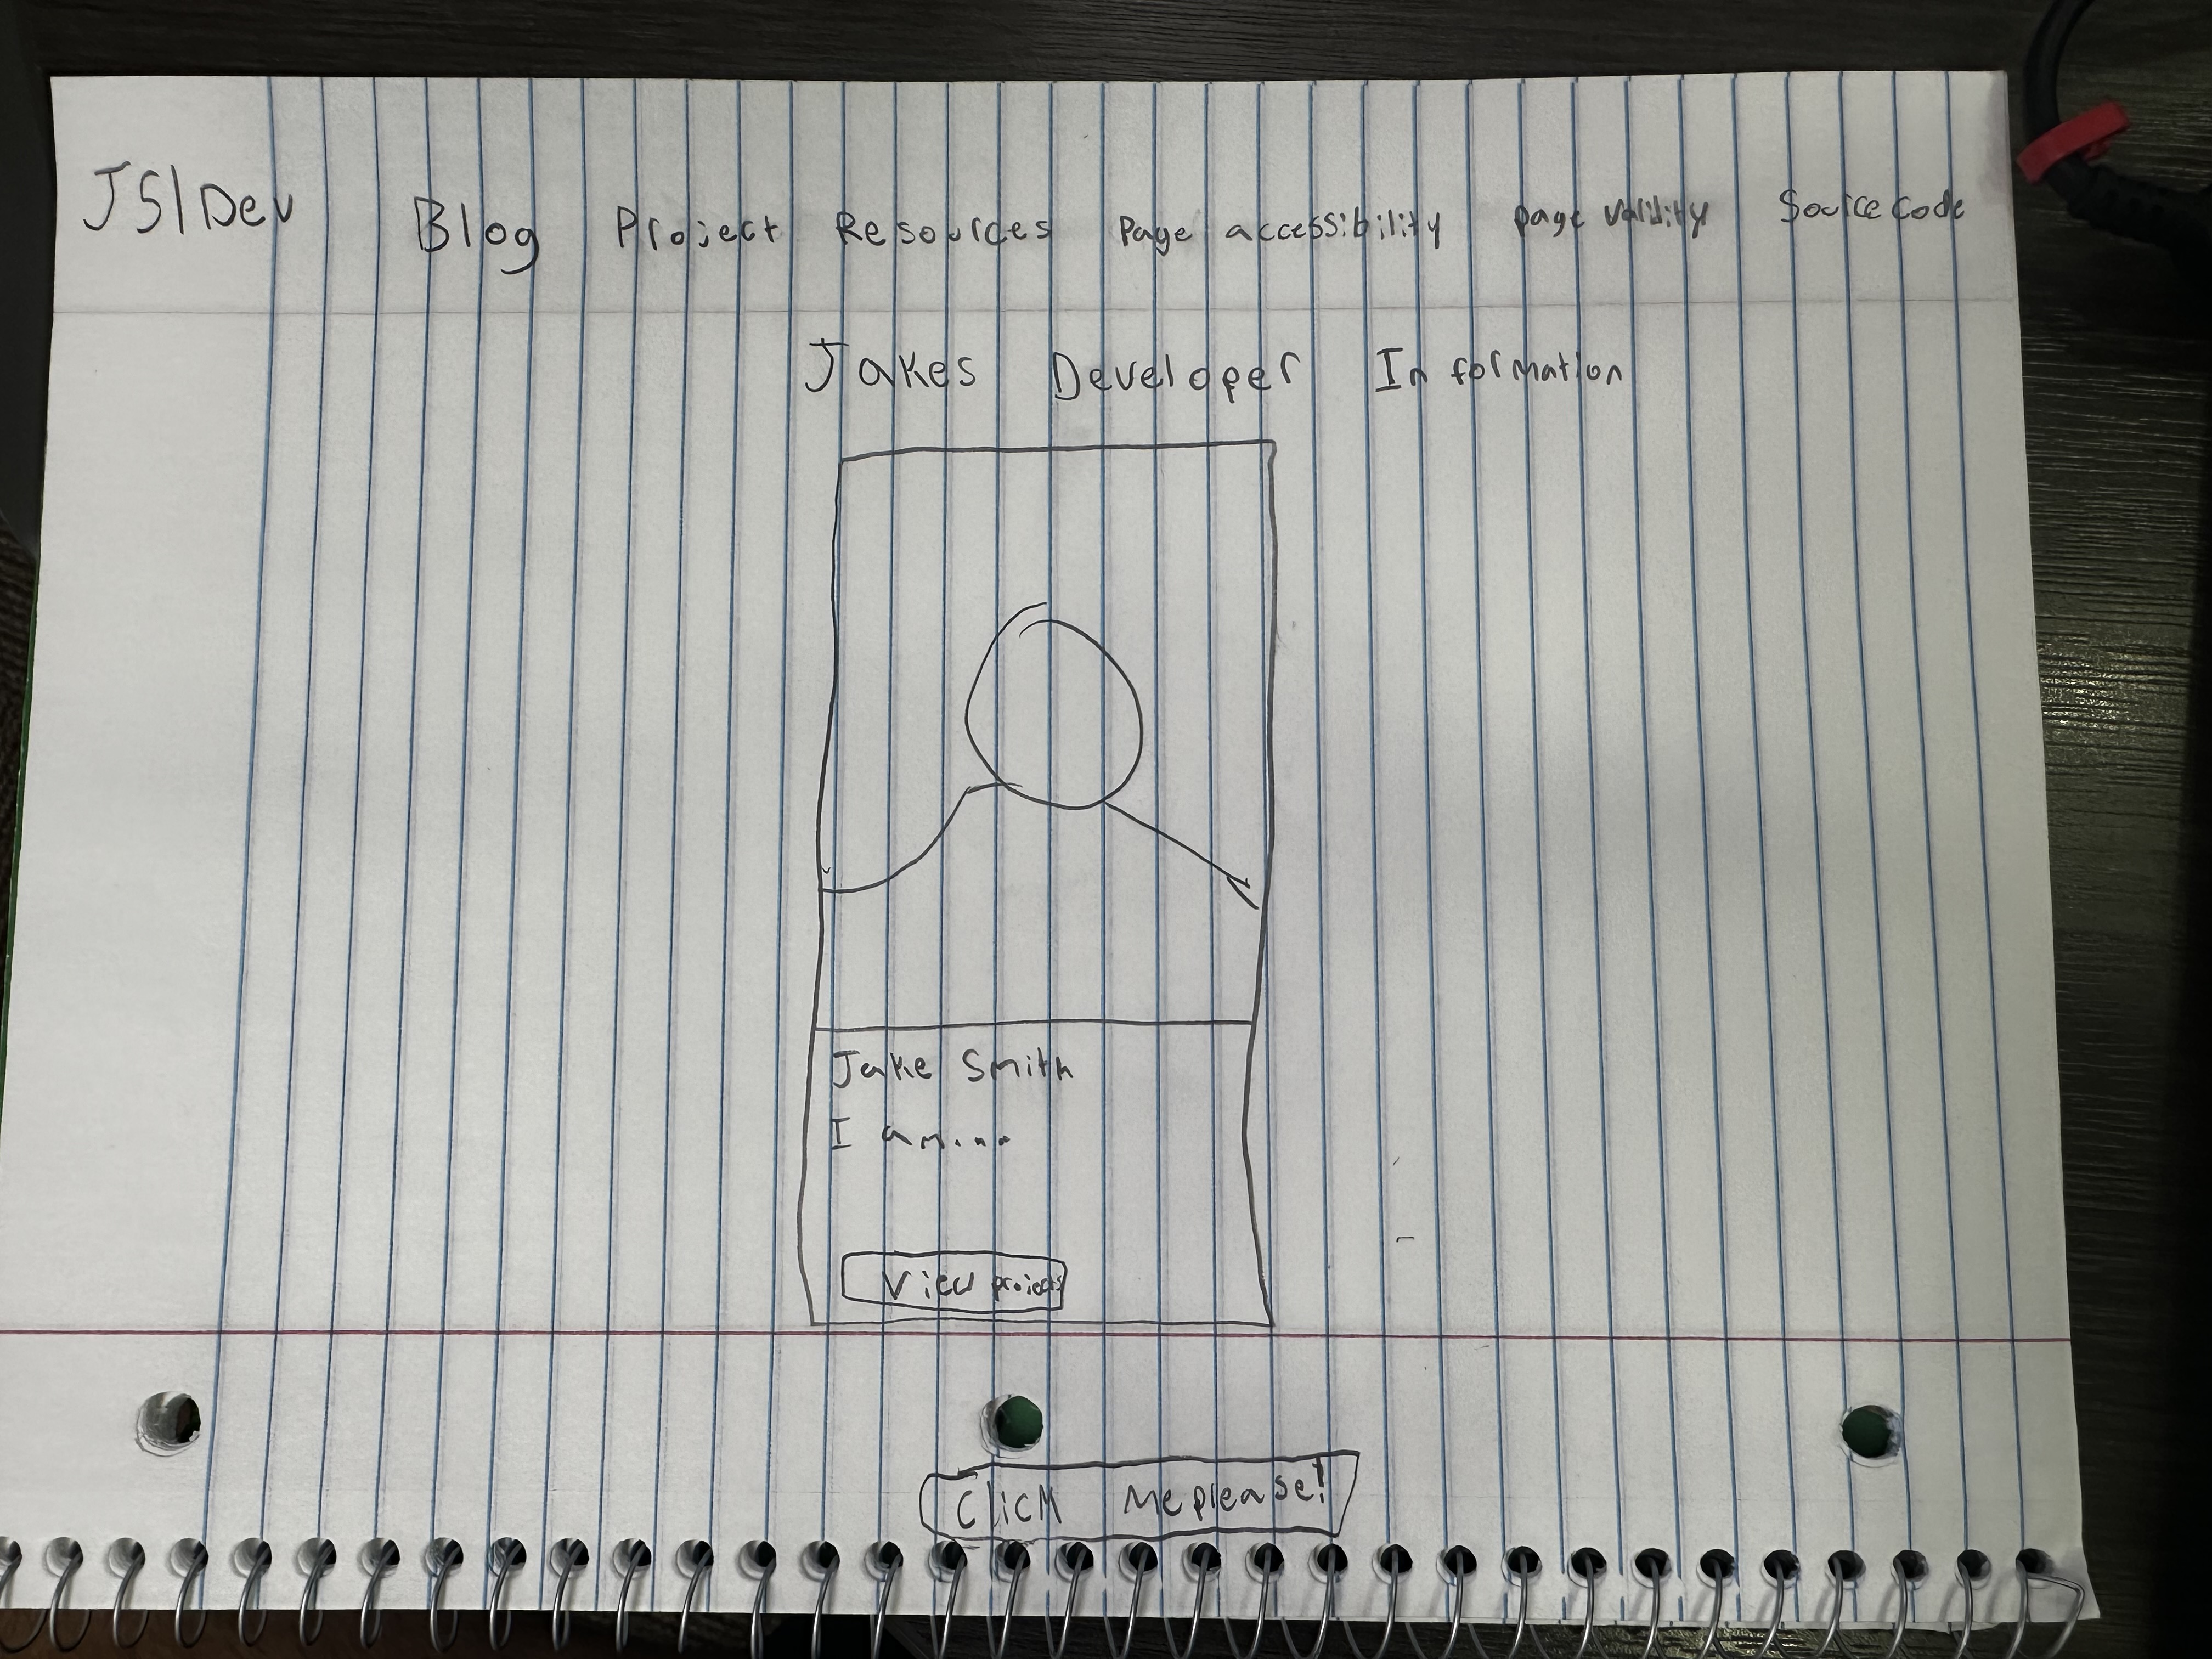 JS1Dev Blog Project Resources Page accessibility page validity Source Code
Jakes Developer Information
Jake Smith
I am....
View projects
Click Me please!